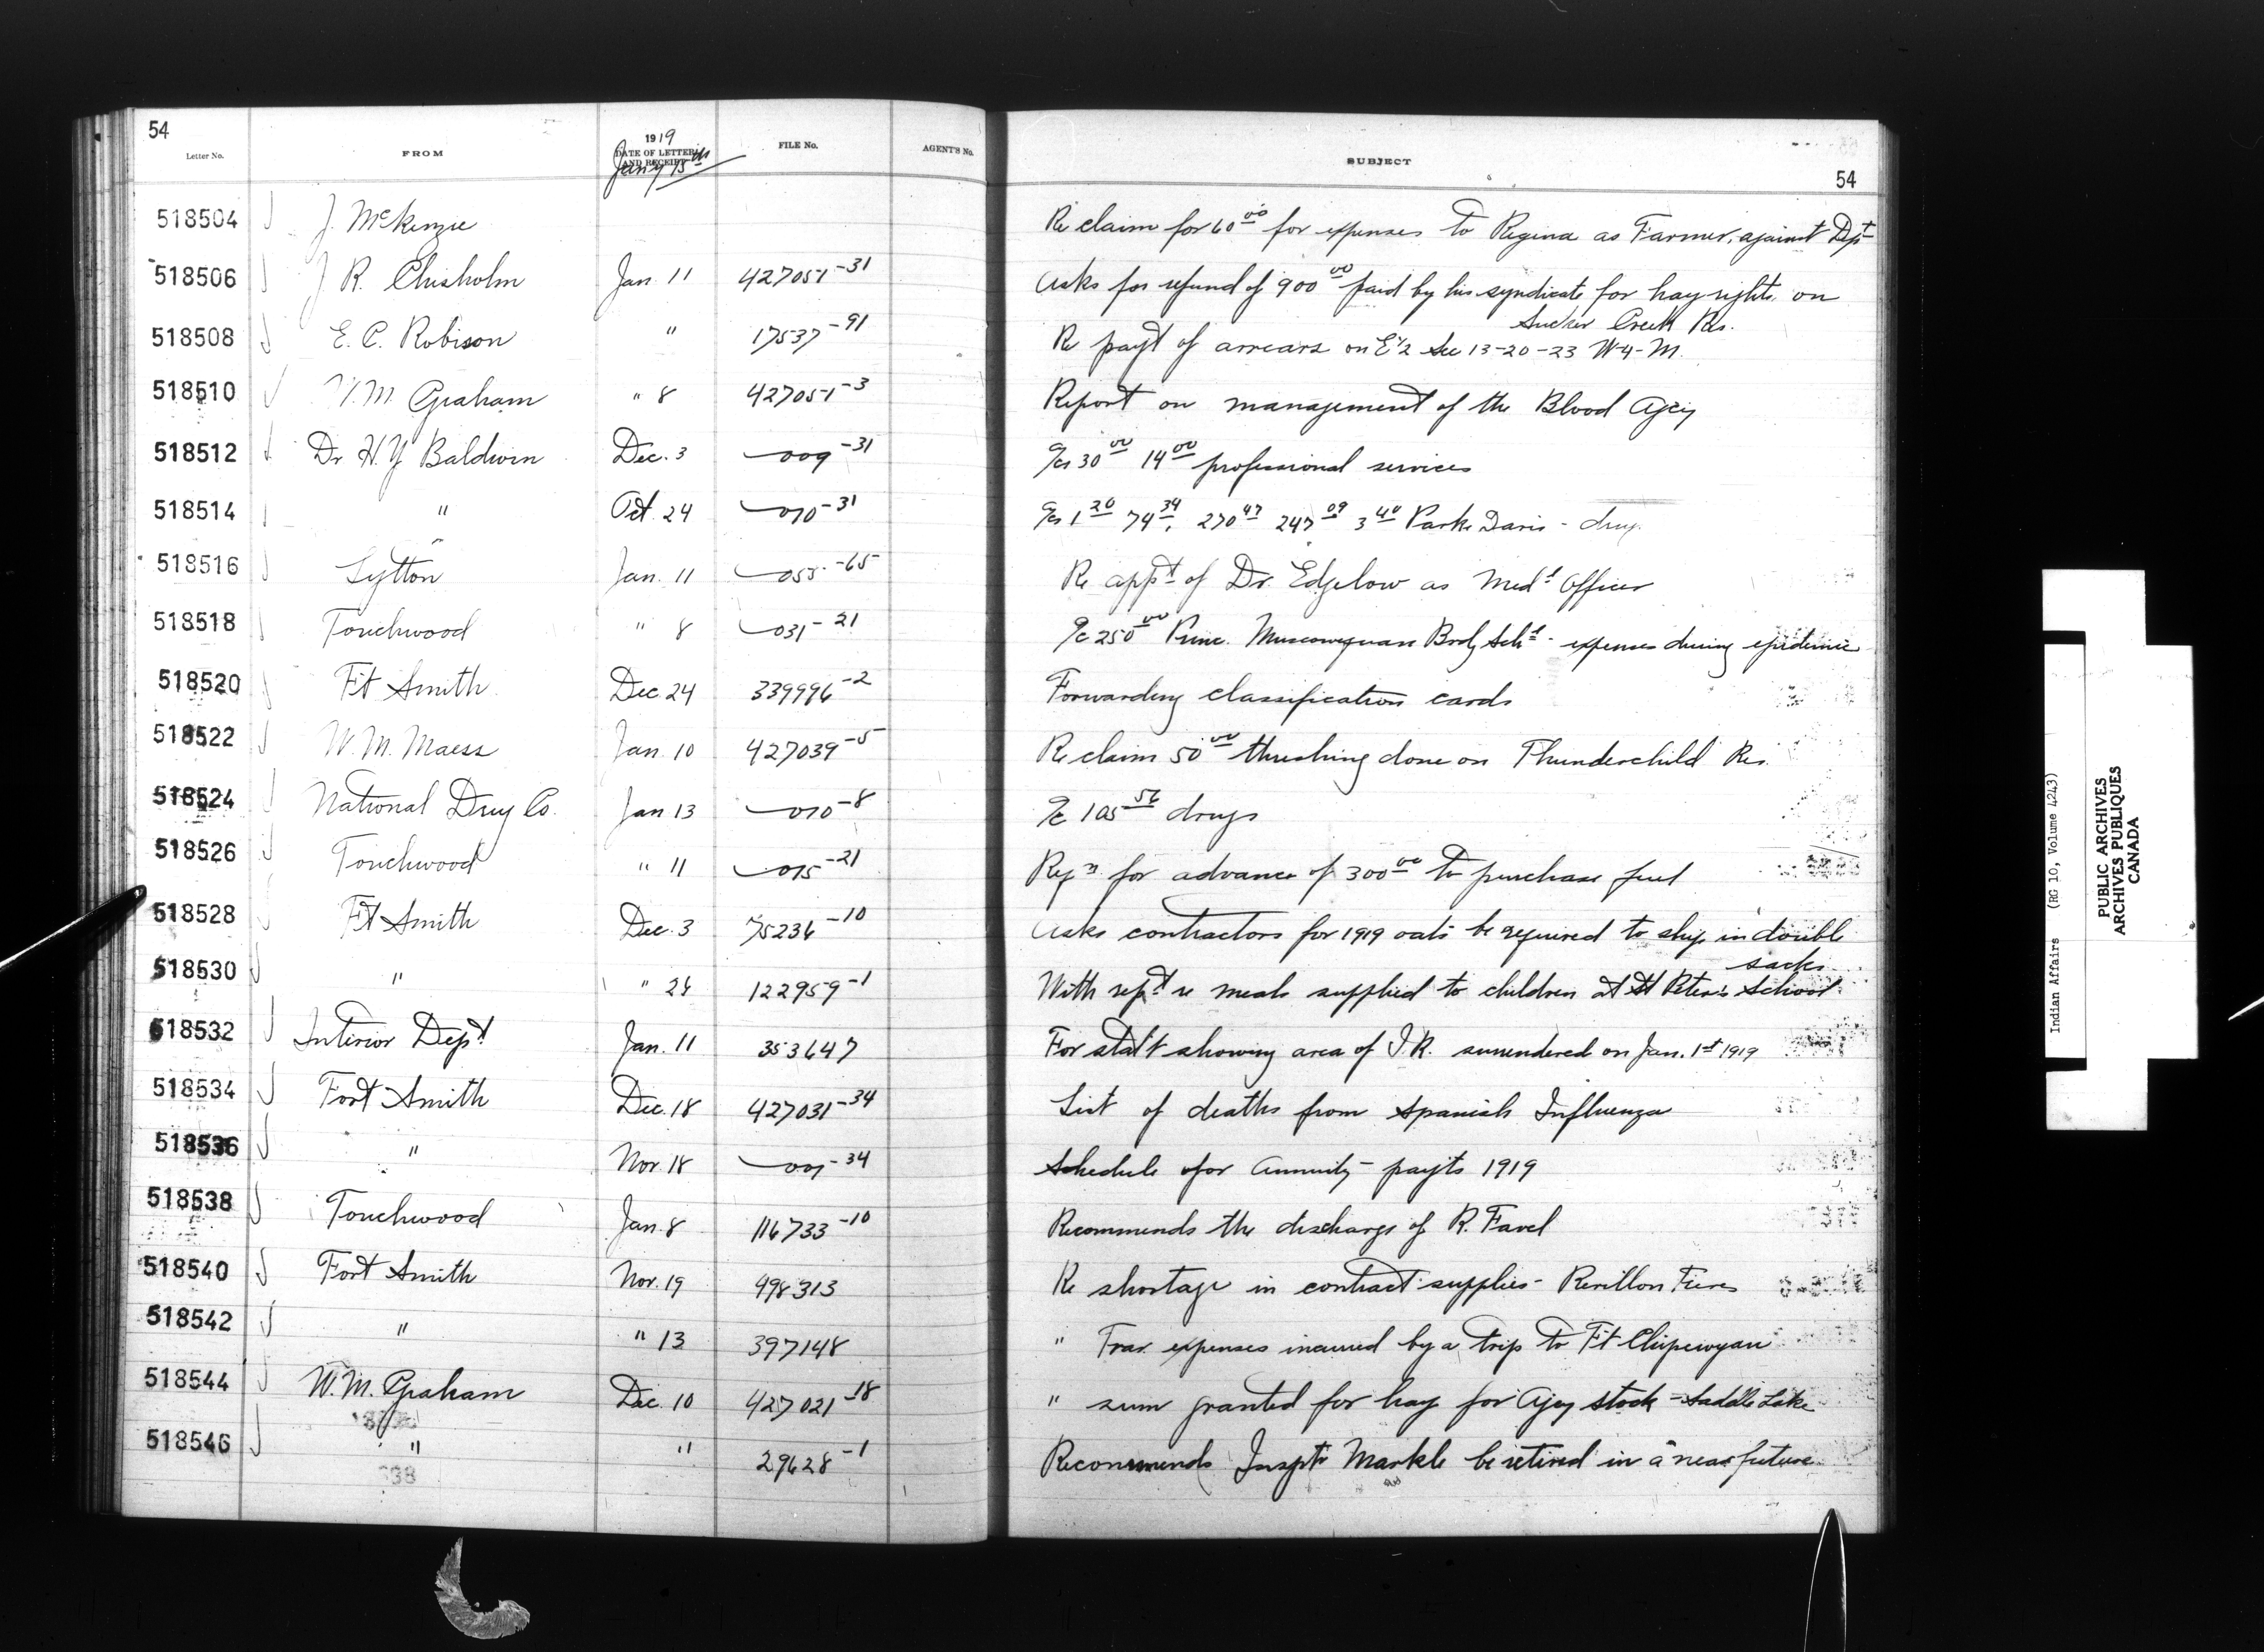 54
Letter No. FROM 1919 DATE OF LETTER AND RECEIPT FILE No. AGENT'S No. SUBJECT
Jan'y 15th
54
518504 J. McKenzie Re claim for 60.00 for expenses to Regina as Farmer, against Dept
518506 J R. Chisholm Jan. 11 427051-31 Asks for refund of 900.00 paid by his syndicate for hay rights on
Sucker Creek Res.
518508 E. C. Robison " 17537-91 Re payt of arrears on E½ Sec 13-20-23 W4-M.
518510 W. M. Graham " 8 427051-3 Report on management of the Blood Agcy
518512 Dr H. Y Baldwin Dec. 3 009-31 a/cs 30.00 14.00 professional services
518514 " Oct. 24 010-31 a/cs 1.20 74.34, 270.47 247.09 3.40 Parke Davis - drugs
518516 Lytton Jan. 11 055-65 Re appt of Dr. Edgelow as Medl Officer
518518 Touchwood " 8 031-21 a/c 250.00 Princ. Muscowequan Brdg Schl - expenses during epidemic
518520 Ft Smith Dec 24 339996-2 Forwarding classification cards
518522 W. M. Maess Jan. 10 427039-5 Re claim 50.00 threshing done on Thunderchild Res.
518524 National Drug Co. Jan 13 010-8 a/c 105.56 drugs
518526 Touchwood " 11 015-21 Reqn for advance of 300.00 to purchase fuel
518528 Ft Smith Dec. 3 75236-10 Asks contractors for 1919 oats be required to ship in double
sacks
518530 " " 24 122959-1 With rept re meals supplied to children at St Peter's School
518532 Interior Dept Jan. 11 353647 For stat't showing area of I.R. surrendered on Jan. 1st 1919
518534 Fort Smith Dec. 18 427031-34 List of deaths from Spanish Influenza
518536 " Nov. 18 001-34 Schedule for Annuity payts 1919
518538 Touchwood Jan. 8 116733-10 Recommends the discharge of R. Favel
518540 Fort Smith Nov. 19 498313 Re shortage in contract supplies - Revillon Freres
518542 " " 13 397148 " Trav. expenses incurred by a trip to Ft Chipewyan
518544 W. M. Graham Dec. 10 427021-18 " sum granted for hay for Agcy stock - Saddle Lake
518546 " " 29628-1 Recommends Inspt'r Markle be retired in a near future
Indian Affairs (RG 10, Volume 4243)
PUBLIC ARCHIVES
ARCHIVES PUBLIQUES
CANADA